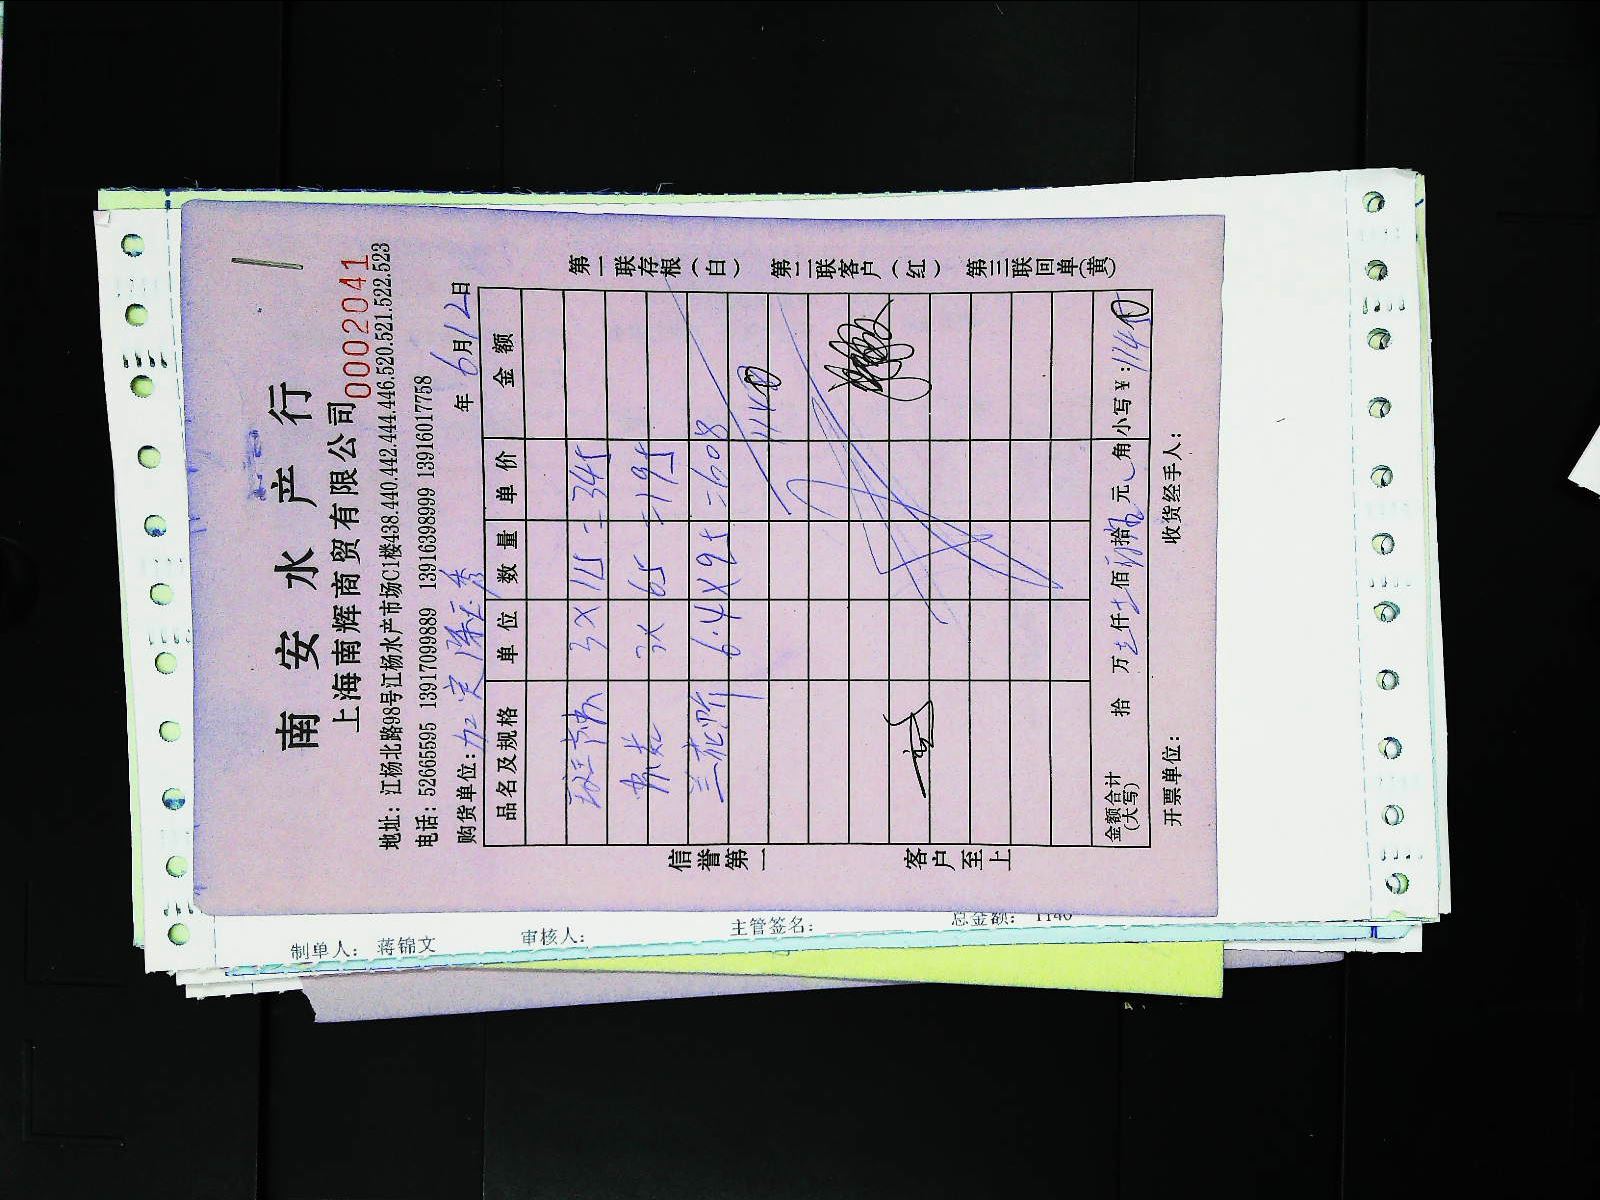 南安水产行
上海南辉商贸有限公司
0002041
地址：江杨北路98号江杨水产市场C1楼438.440.442.444.446.520.521.522.523
电话：52665595 13917099889 13916398999 13916017758
购货单位：加定
年6月12日
品名及规格 单位 数量 单价 金额
3×115=345
3×65=195
兰花 6.4×95=608
1140
金额合计(大写) 拾 万 仟 佰 拾 元 角 小写¥：1140
开票单位： 收货经手人：
信誉第一 客户至上
第一联存根(白) 第二联客户(红) 第三联回单(黄)
制单人：蒋锦文 审核人： 主管签名： 总金额：1140